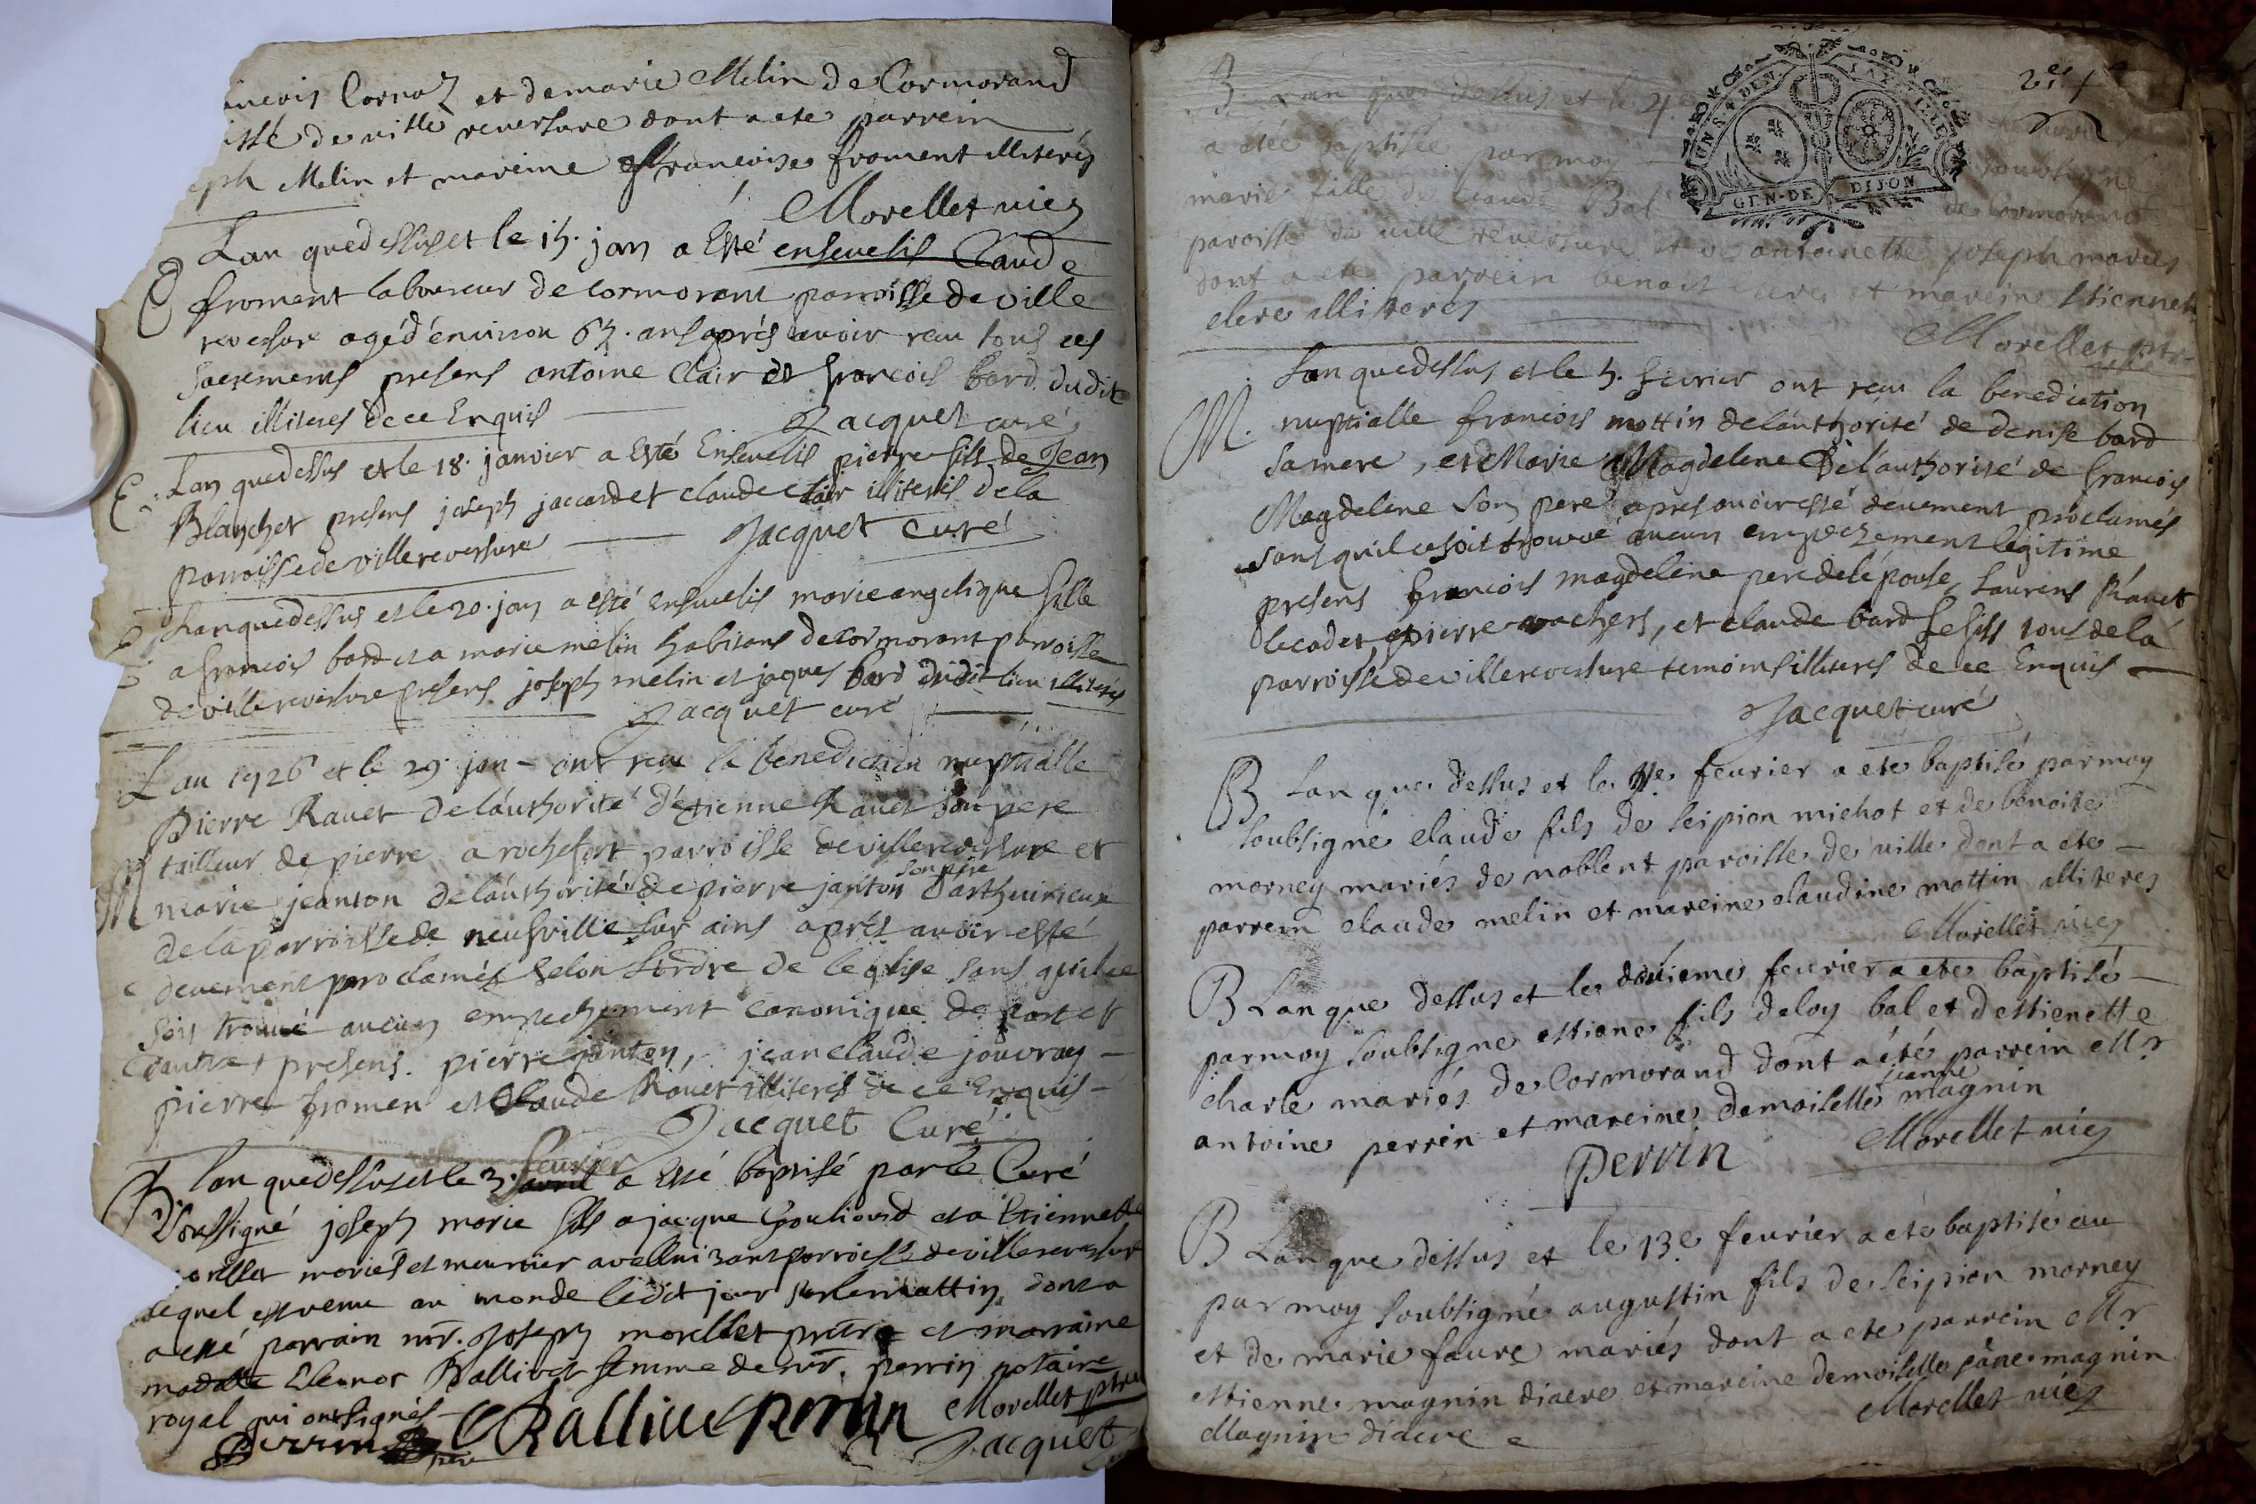 Cornaz et de marie Melin de Cormorand
de ville reversure dont a ete parrein
eph Melin et mareine françoise froment illiterés
Morellet vic
Lan que dessus et le 15. jan a Esté ensevelis Claude
E froment laboureur de cormorant parroisse de ville
reversure agé d'environ 65. ans aprés avoir reçu tous ces
sacrements presens antoine Clair et francois bard dudit
lieu illiteres de ce Enquis
Jacquet curé
E. Lan que dessus et le 18. janvier a Esté Ensevelis pierre fils de Jean
Blanchet presens joseph jaccard et claude clair illiterés de la
parroisse de ville reversure Jacquet Curé
E Lan que dessus et le 20. jan a esté ensevelis marie angelique fille
a francois bard et a marie melin habitans de Cormorant parroisse
de ville reversure presens joseph melin et jaques bard dudit lieu illiterés
Jacquet curé
L'an 1726 et le 29. jan - ont reçu la benediction nuptialle
pierre Ravet de l'authorité d'étienne Ravet son pere
tailleur de pierre a rochefort parroisse de ville reversure et
M marie jeanton de l'authorité de pierre janton son pere d'arthuirieux
de la parroisse de neufville sur ains aprés avoir esté
devement proclamés selon l'ordre de l'eglise sans qu'il se
soit trouvé aucun empechement canonique de part et
d'autre, presens. pierre janton, jean claude jouvray -
pierre fromen et Claude Ravet illiterés de ce Enquis -
Jacquet Curé
B lan que dessus et le 3. fevrier a esté baptisé par le Curé
soussigné joseph marie fils a jacque Goulioud et a Etiennette
orellet mariés et meunier a parroisse de ville reversure
lequel est venu au monde ledit jour sur le mattin dont a
a esté parrain mr. Joseph morellet prtre et marraine
madelle Eleonor Ballivet femme de mr. perrin notaire
royal qui ont signés - Morellet ptre
Perrin E Ballivet perrin Jacquet
B Lan que dessus et le 4e
a etée baptisée par moy soubsigné
marie fille de Claude Bal de cormorand
paroisse de ville reversure et d antoinette joseph mariés
dont a ete parrein benoit et mareine Etiennette
clere illiteres
Morellet ptre
Lan que dessus et le 5. fevrier ont reçu la benediction
M. nuptialle francois mottin de l'authorité de denise bard
sa mere, et Marie Magdelene de l'authorité de francois
Magdelene son pere apres avoir esté devement proclamés
sans qu'il se soit trouvé aucun empechement legitime
presens francois magdelene pere de l'épouse, laurens Ravet
le cadet, pierre vachers, et claude bard le fils tous de la
parroisse de ville reversure temoins illiteres de ce Enquis -
Jacquet curé
B Lan que dessus et le 11e fevrier a ete baptisé par moy
soubsigné claude fils de scipion michot et de benoite
morney mariés de noblent paroisse de ville dont a ete -
parrein claude melin et mareine claudine mottin illiteres
Morellet vic
B Lan que dessus et le douzieme fevrier a ete baptisé -
par moy soubsigne estiene fils deloy bal et d estienette
charle mariés de Cormorand dont a été parrein Mr
antoine perrin et mareine demoiselle jeanne magnin
Perrin Morellet vic
B Lan que dessus et le 13e fevrier a ete baptisé au
par moy soubsigné augustin fils de scipion morney
et de marie faure mariés dont a ete parrein Mr
estienne magnin diacre et mareine demoiselle jane magnin
Magnin diacre Morellet vic
GEN·DE DIJON